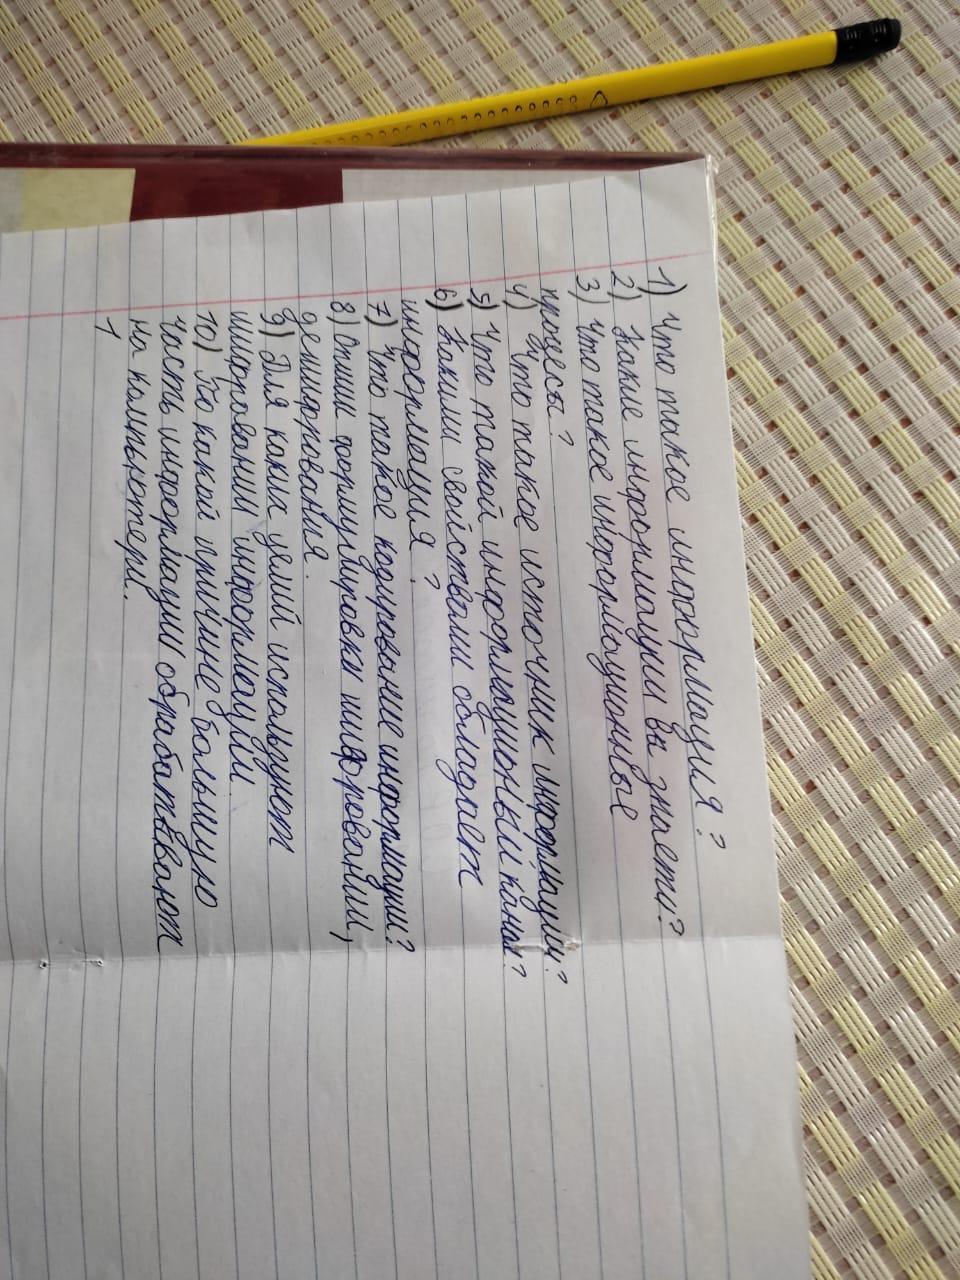 1) Что такое информация?
2) Какие информации вы знаете?
3) Что такое информационные
процесы?
4) Что такое источник информации?
5) Что такой информационый канал?
6) Какими свойствами обладает
информация?
7) Что такое кодирование информации?
8) Опиши формулировки шифровании,
дешифрования.
9) Для каких целий используют
шифровании информации.
10) По какой причине большую
часть информации обрабатывают
на компьютери.